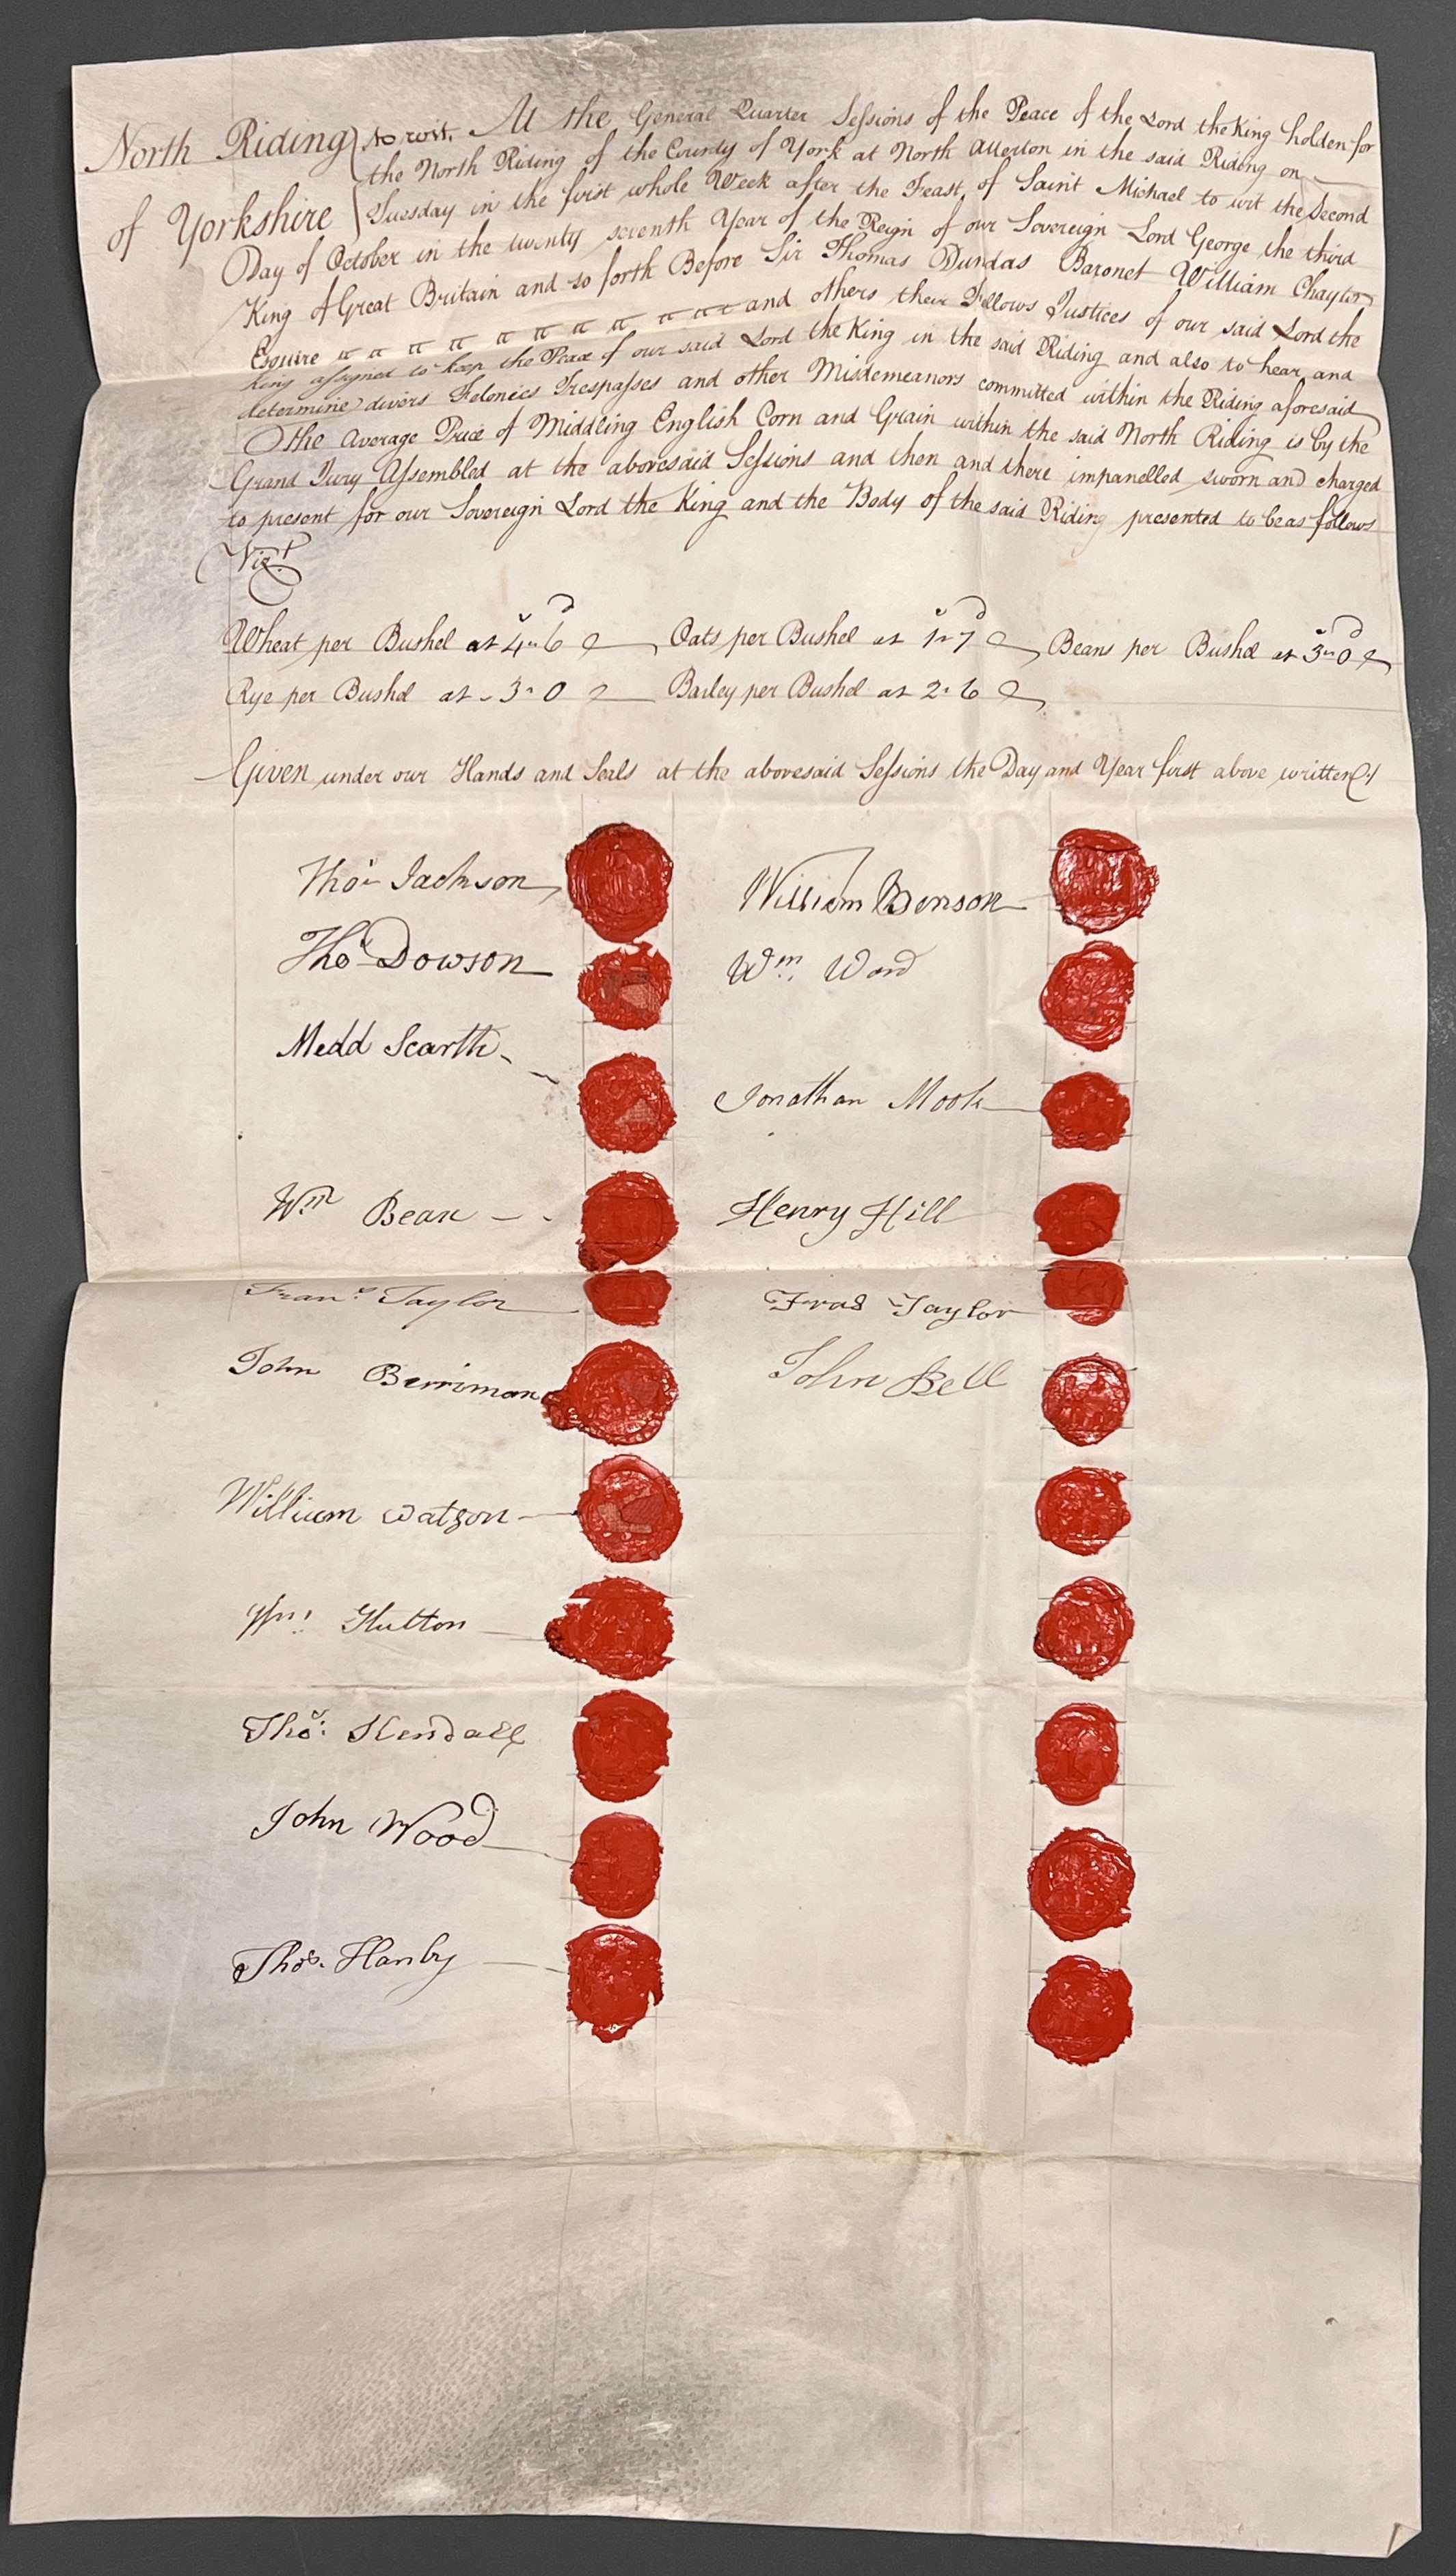 North Riding } to wit. At the General Quarter Sessions of the Peace of the Lord the King holden for
the North Riding of the County of York at North Allerton in the said Riding on
of Yorkshire } Tuesday in the first whole Week after the Feast of Saint Michael to wit the Second
Day of October in the twenty seventh Year of the Reign of our Sovereign Lord George the third
King of Great Britain and so forth Before Sir Thomas Dundas Baronet William Chaytor
Esquire and others their Fellows Justices of our said Lord the
King assigned to keep the Peace of our said Lord the King in the said Riding and also to hear and
determine divers Felonies Trespasses and other Misdemeanors committed within the Riding aforesaid
The Average Price of Middling English Corn and Grain within the said North Riding is by the
Grand Jury Assembled at the abovesaid Sessions and then and there impanelled sworn and charged
to present for our Sovereign Lord the King and the Body of the said Riding presented to be as follows
Vizt
Wheat per Bushel at 4s 6d Oats per Bushel at 1s 7d Beans per Bushel at 3s 0d
Rye per Bushel at 3 " 0 Barley per Bushel at 2 " 6
Given under our Hands and Seals at the abovesaid Sessions the Day and Year first above written
Thos Jackson William Benson
Thos Dowson Wm. Ward
Medd Scarth
Jonathan Mook
Wm Bean Henry Hill
Frans Taylor Fras Taylor
John Berriman John Bell
William Watson
Wm. Hutton
Thos: Kendall
John Wood
Thos. Hanby